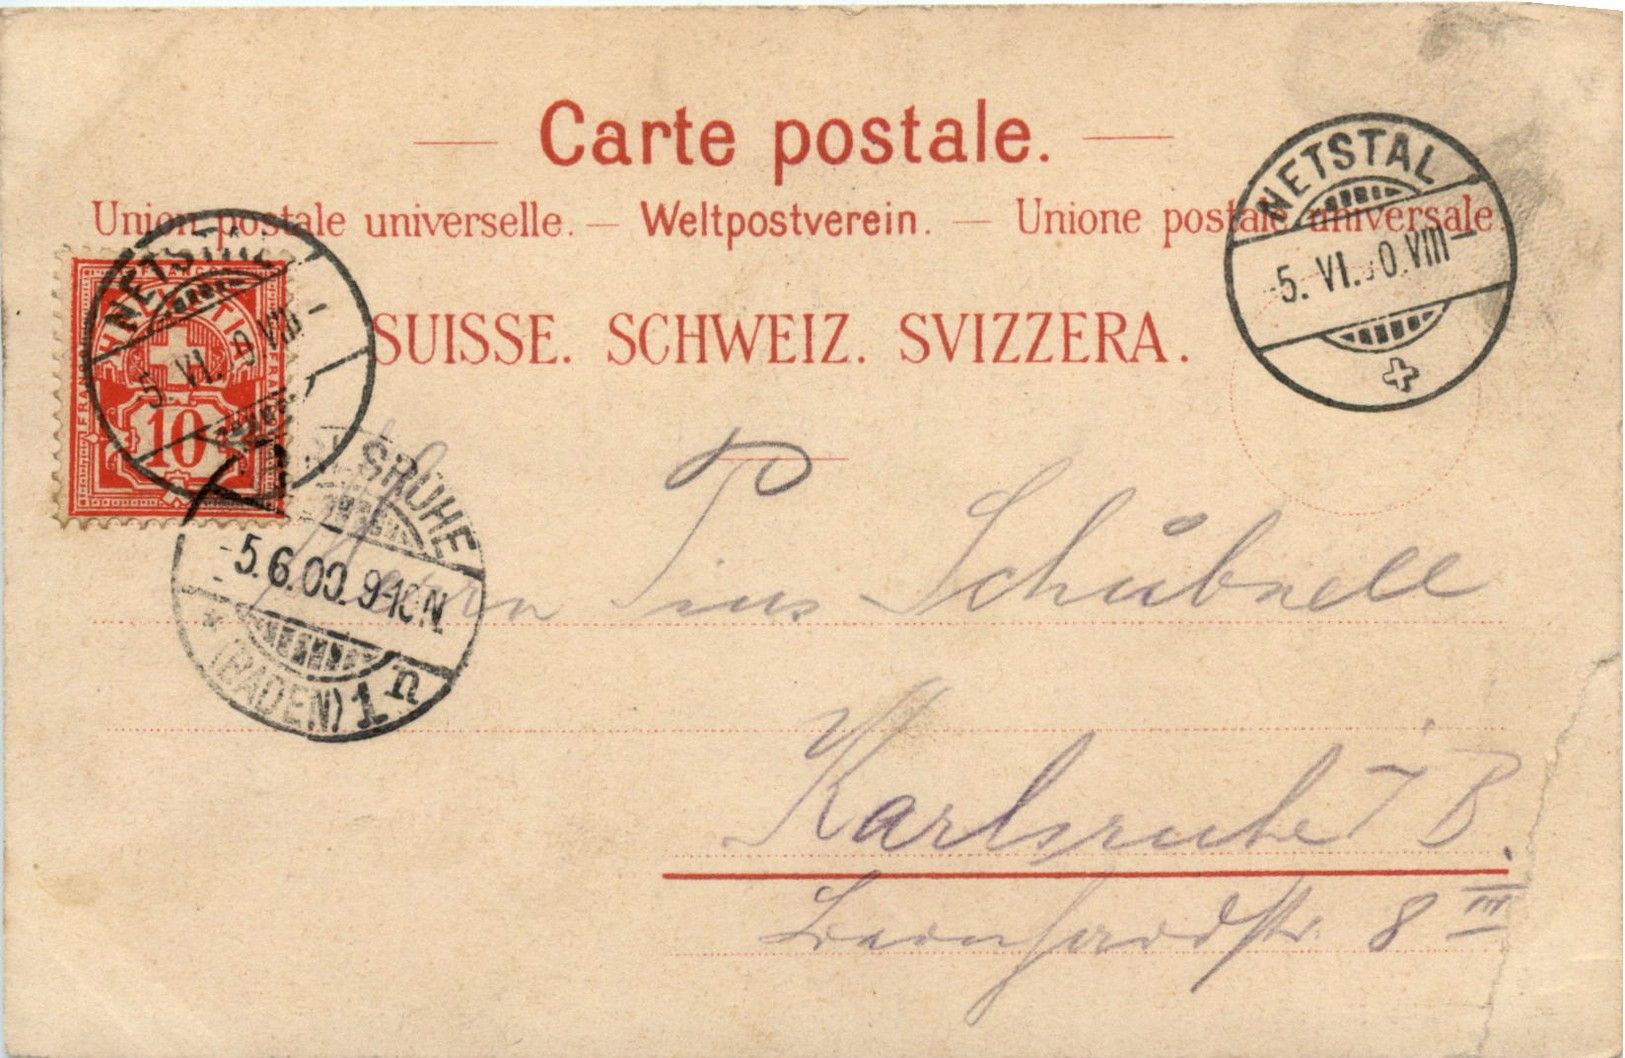 Carte postale.
Union postale universelle. — Weltpostverein. — Unione postale universale
SUISSE. SCHWEIZ. SVIZZERA.
NETSTAL
5. VI. 00. VIII
NETSTAL
5. VI. VIII
FRANCO
HELVETIA
10
KARLSRUHE
5.6.00. 9-10.N.
(BADEN) 1 n
Herrn Pius Schübnell
Karlsruhe i B.
8 III